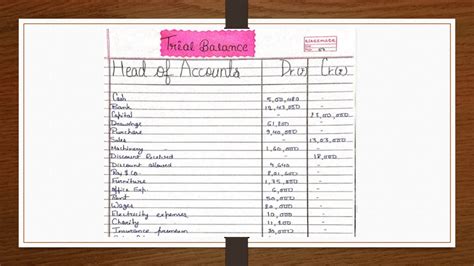 Trial Balance
Head of Accounts Dr.(₹) Cr.(₹)
Cash 5,00,480 -
Bank 12,43,050 -
Capital - 25,00,000
Drawings 61,200 -
Purchase 9,40,000 -
Sales - 13,03,000
Machinery 1,60,000 -
Discount Received - 18,000
Discount allowed 9,640
Roy & Co. 8,01,600 -
Furniture 1,35,000 -
Office Exp. 6,000 -
Rent 50,000 -
Wages 20,000 -
Electricity expenses 10,000 -
Charity 11,200 -
Insurance premium